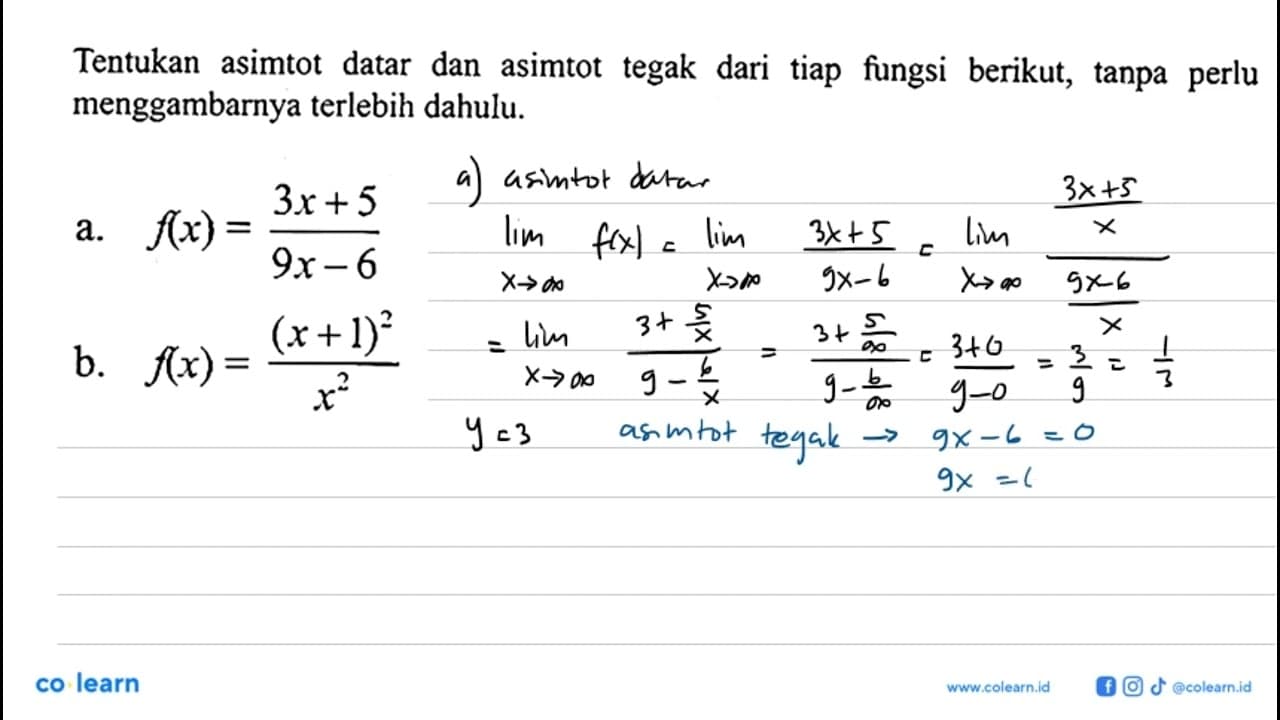 Tentukan asimtot datar dan asimtot tegak dari tiap fungsi berikut, tanpa perlu
menggambarnya terlebih dahulu.
a. f(x) = (3x + 5)/(9x – 6)
b. f(x) = (x + 1)²/x²
a) asimtot datar
lim x→∞ f(x) = lim x→∞ (3x+5)/(9x-6) = lim x→∞ ((3x+5)/x)/((9x-6)/x)
= lim x→∞ (3+5/x)/(9-6/x) = (3+5/∞)/(9-6/∞) = (3+0)/(9-0) = 3/9 = 1/3
y = 3 asimtot tegak → 9x-6 = 0
9x = (
co learn
www.colearn.id @colearn.id